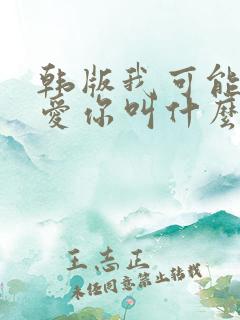 韩版我可能
爱你叫什么
王志正
未经同意禁止转载